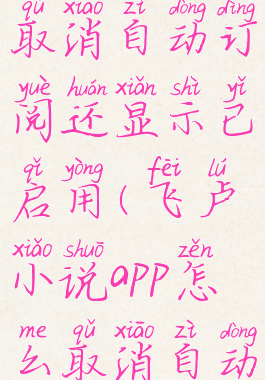 qǔ xiāo zì dòng dìng
取消自动订
yuè huán xiǎn shì yǐ
阅还显示已
qǐ yòng fēi lú
启用(飞卢
xiǎo shuō zěn
小说app怎
me qǔ xiāo zì dòng
么取消自动